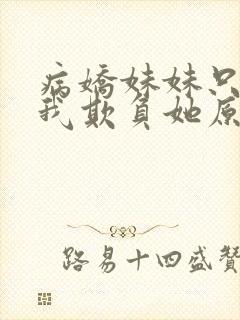 病嬌妹妹只
我欺負她原
路易十四盛贊